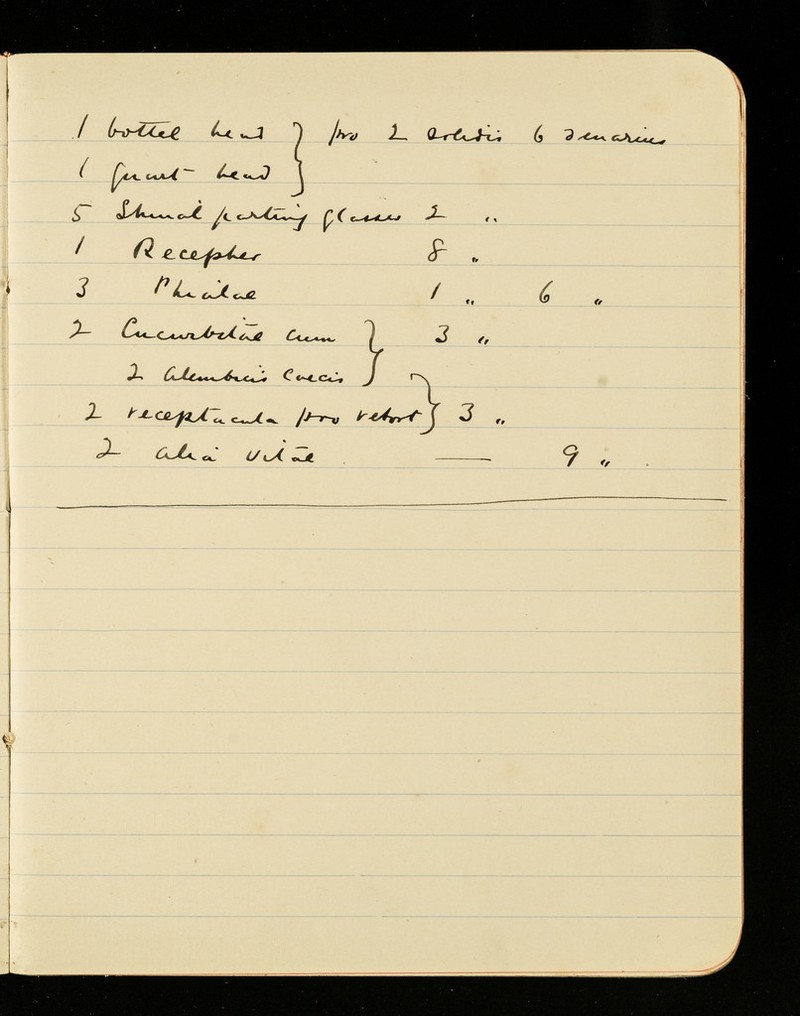 1 bottel head } pro 2 solidis 6 denarius
1 quart head }
5 Shmal parting glasses 2 "
1 Recepher 8 "
3 Phialae 1 " 6 "
2 Cucurbitae cum } 3 "
2 alembicis Coecis }
2 receptacula pro retort } 3 "
2 alia Vitae — 9 "